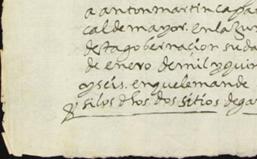 a anton martin capa
cal de mayor. en la
destagobernacion
de enero de mil y quin
y seis. en que le man de
silos dhos dos sitios de ga